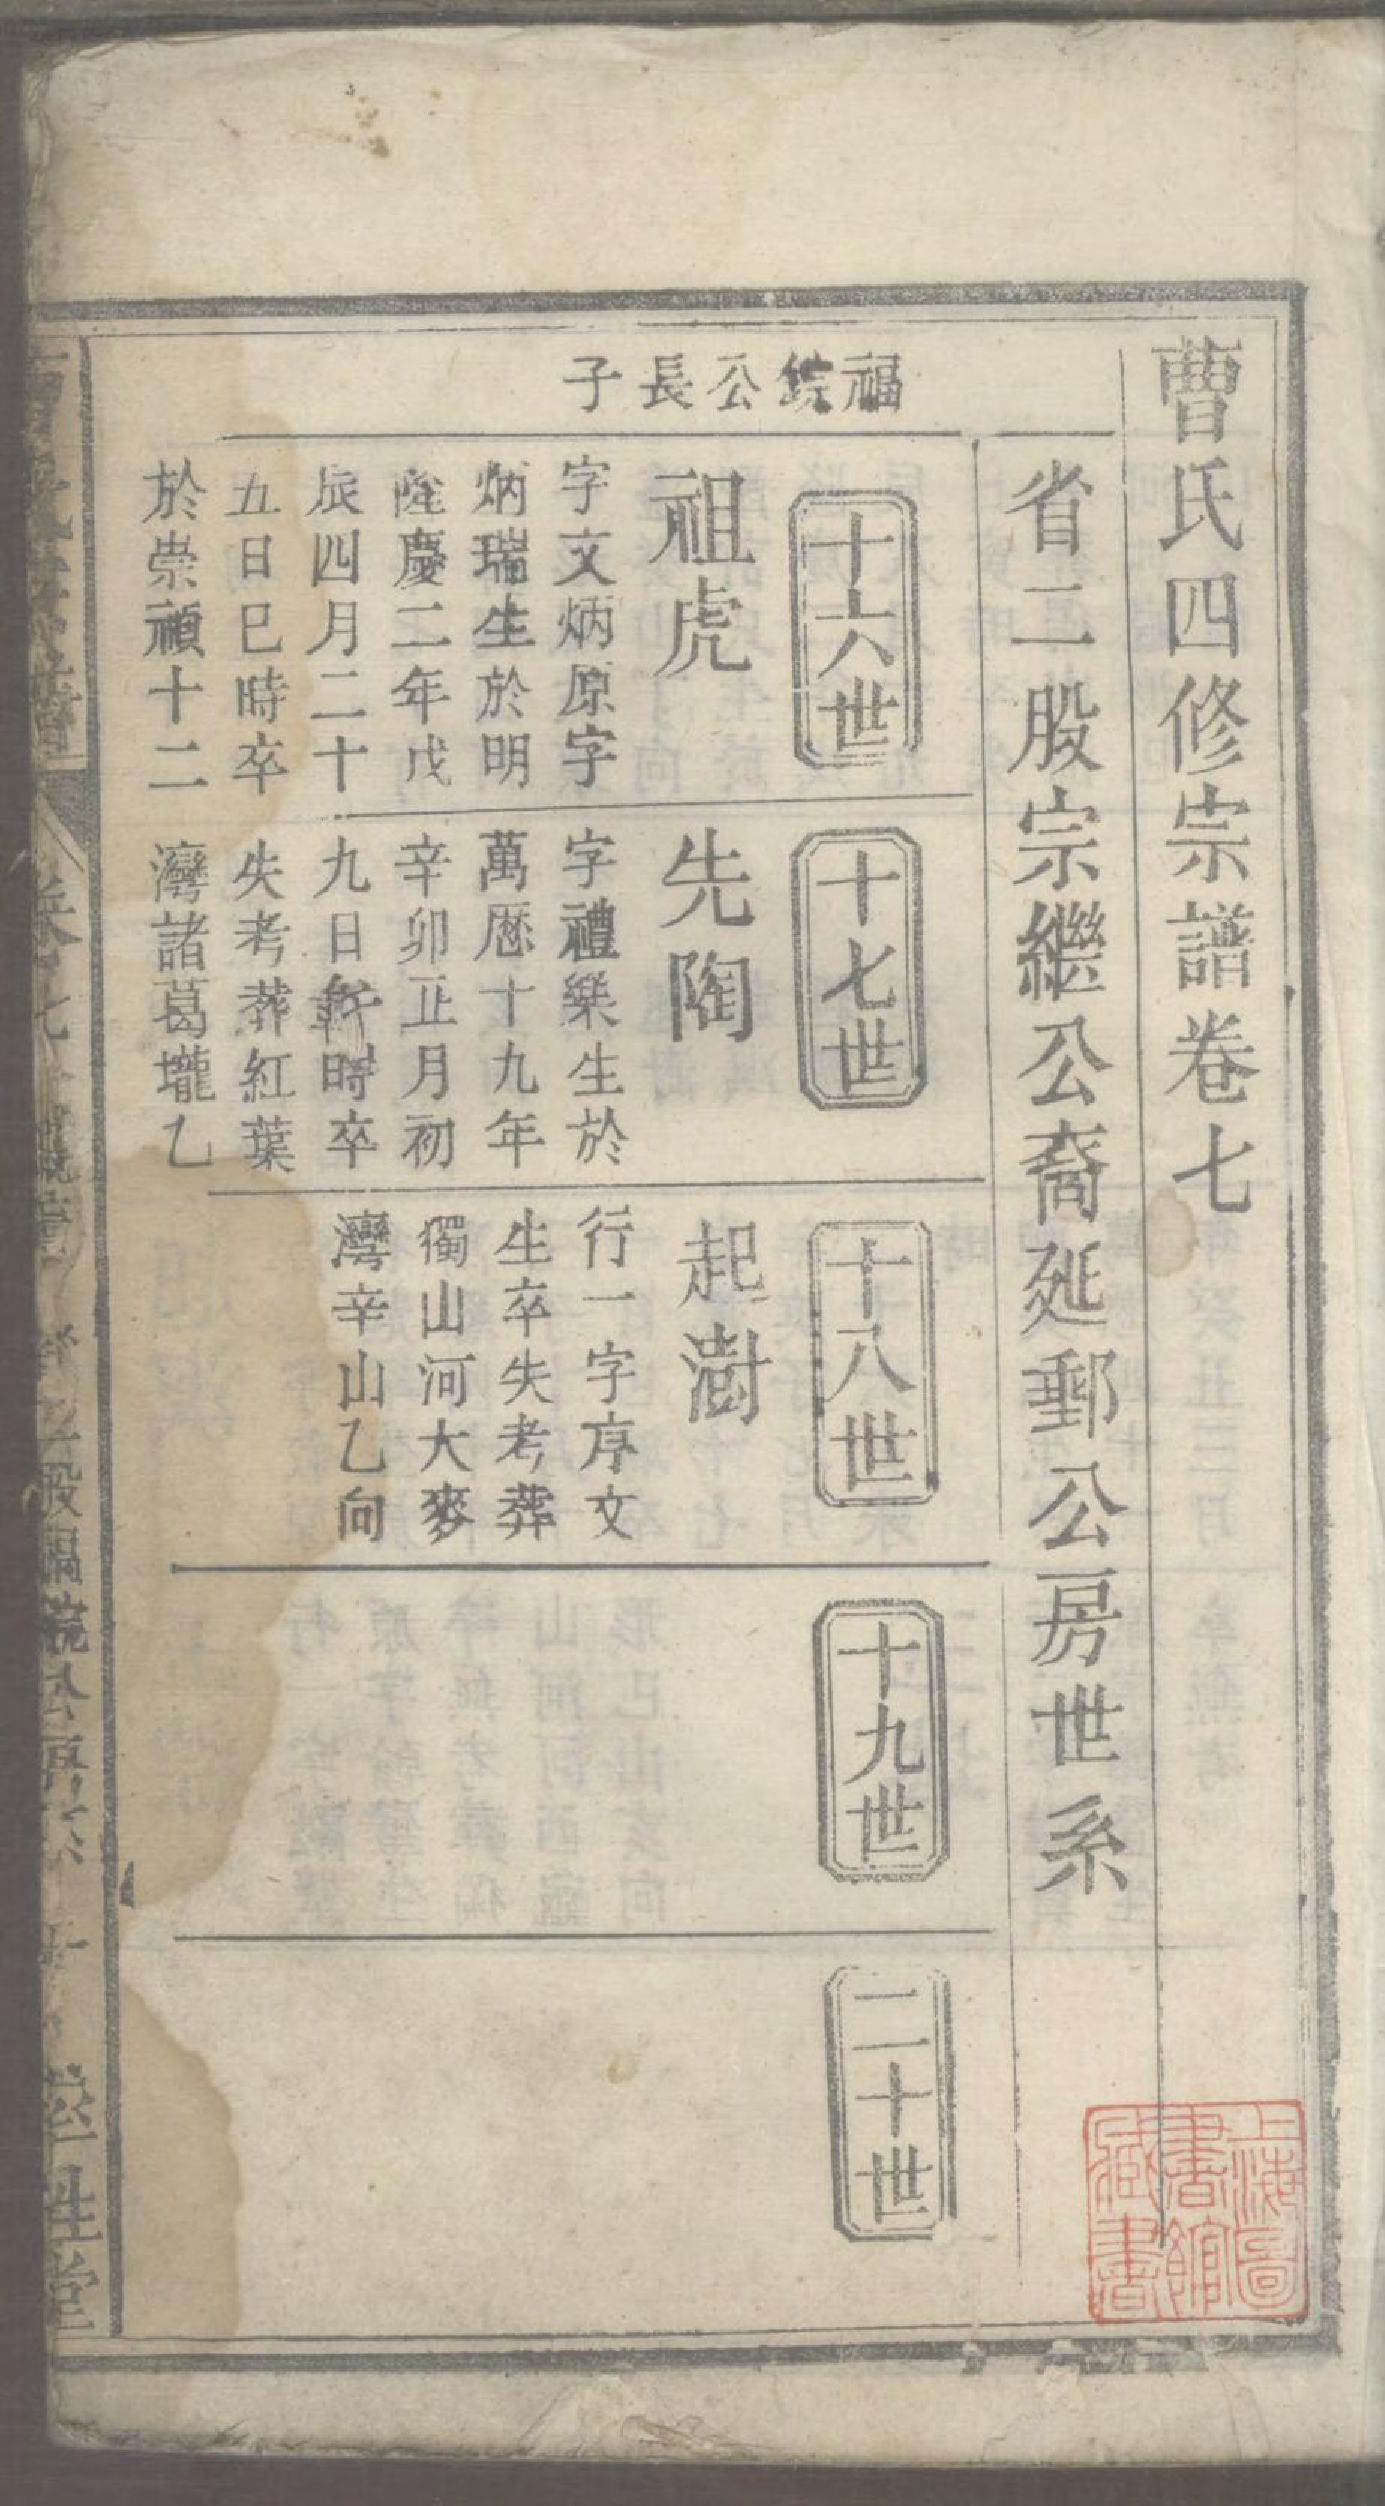 曹氏四修宗譜卷七
省二股宗繼公裔延郵公房世系
福綂公長子
十六世
祖虎
字文炳原字
炳瑞生於明
隆慶二年戊
辰四月二十
五日巳時卒
於崇禎十二
十七世
先陶
字禮樂生於
萬厯十九年
辛卯正月初
九日 時卒
失考葬紅葉
灣諸葛壠乙
十八世
起澍
行一字序文
生卒失考葬
獨山河大麥
灣辛山乙向
十九世
二十世
卷七
公房
率性堂
上海圖
書館
藏書